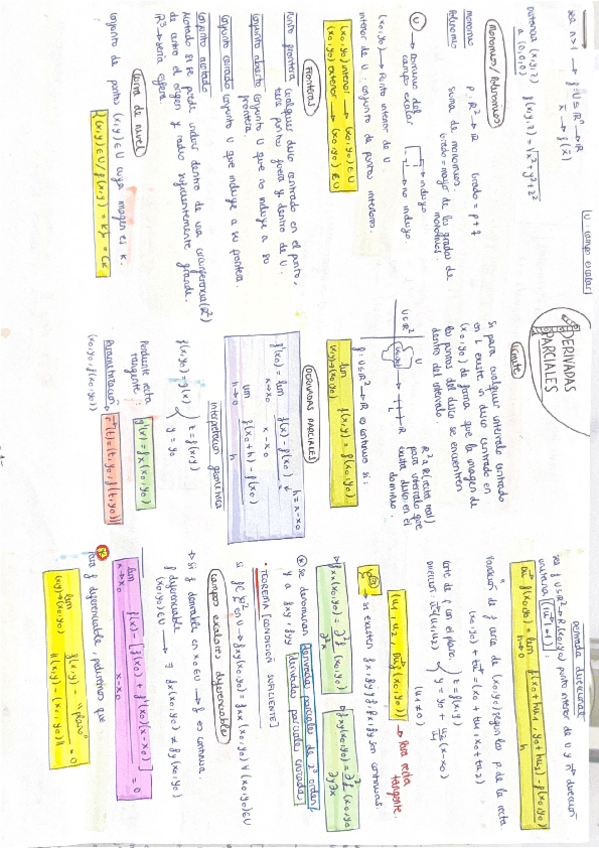 U: campo escalar
sea n>1 → f: U ⊆ Rⁿ → R
x̄ → f(x̄)
distancia (x,y,z) a (0,0,0)
f(x,y,z) = √x²+y²+z²
Monomios/Polinomios
monomio p: R² → R Grado = p+q
Polinomio suma de monomios.
Grado = mayor de los grados de monomios
U → dominio del campo escalar
→ incluyo
→ no incluyo
(x₀,y₀) → punto interior de U
interior de U: conjunto de puntos interiores.
(x₀,y₀) interior → (x₀,y₀) ∈ U
(x₀,y₀) exterior → (x₀,y₀) ∉ U
Fronteras
Punto frontera cualquier disco centrado en el punto,
tiene puntos fuera y dentro de U.
Conjunto abierto conjunto U que no incluye a su
frontera.
Conjunto cerrado conjunto U que incluye a su frontera.
Conjunto acotado
Acotado si se puede incluir dentro de una circunferencia (R²)
de centro el origen y radio suficientemente grande.
R³ → sería esfera
Curva de nivel
Conjunto de puntos (x,y) ∈ U cuya imagen es K.
{(x,y) ∈ U / f(x,y) = K} = Cₖ
DERIVADAS
PARCIALES
Límite
Si para cualquier intervalo centrado
en L existe un disco centrado en
(x₀,y₀) de forma que la imagen de
los puntos del disco se encuentren
dentro del intervalo.
U ⊂ R²
U
R
R² a R (recta real)
para intervalo que
exista disco en el
dominio
f: U ⊆ R² → R es continua si:
lim f(x,y) = f(x₀,y₀)
(x,y)→(x₀,y₀)
DERIVADAS PARCIALES
h = x-x₀
f'(x₀) = lim f(x) - f(x₀)
x→x₀ x-x₀
lim f(x₀+h) - f(x₀)
h→0 h
interpretación geométrica
f(x,y₀) = g(x) { z = f(x,y)
y = y₀
Pendiente recta
tangente:
g'(x) = fx(x₀,y₀)
Parametrización → r(t) = (t, y₀, f(t,y₀))
(x₀,y₀, f(x₀,y₀))
Derivada direccional
sea f: U ⊆ R² → R (x₀,y₀) punto interior de U y u⃗ dirección
unitaria (‖u⃗‖ = 1):
Du⃗ f(x₀,y₀) = lim f(x₀+hu₁, y₀+hu₂) - f(x₀,y₀)
h→0 h
Variación de f cerca de (x₀,y₀) según los p de la recta.
(x₀,y₀) + tu⃗ = (x₀+tu₁, y₀+tu₂)
corte de z con el plano { z = f(x,y)
dirección: u⃗(u₁,u₂) y = y₀ + u₂/u₁ (x-x₀)
(u₁ ≠ 0)
(u₁, u₂, Du⃗ f(x₀,y₀)) → Para recta
tangente.
→ si existen fx, fy y fx, fy son continuas.
fxx(x₀,y₀) = ∂²f/∂x² (x₀,y₀)
fxy(x₀,y₀) = ∂²f/∂y∂x (x₀,y₀)
se denominan derivadas parciales de 2º orden
y a fxy, fyx derivadas parciales cruzadas.
TEOREMA [CONDICIÓN SUFICIENTE]
si f C² en U → fxy(x₀,y₀) = fyx(x₀,y₀) ∀(x₀,y₀) ∈ U
Campos escalares diferenciables
→ Si f derivable en x₀ ∈ U → f es continua.
f diferenciable
(x₀,y₀) ∈ U → ∃ fx(x₀,y₀) y fy(x₀,y₀)
lim f(x) - [f(x₀) + f'(x₀)(x-x₀)] = 0
x→x₀ x-x₀
Para f diferenciable, podremos que
lim f(x,y) - "plano" = 0
(x,y)→(x₀,y₀) ‖(x,y) - (x₀,y₀)‖